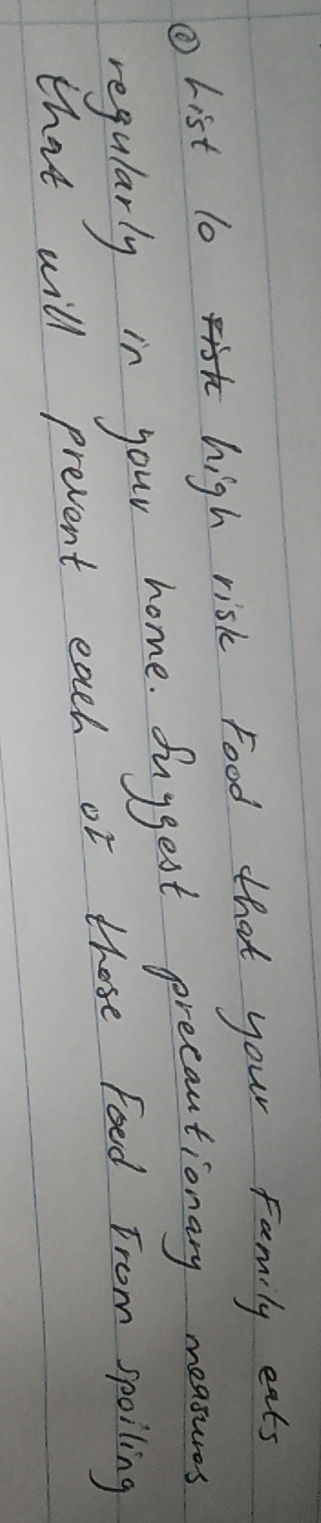 ② List 10 risk high risk Food that your Family eats
regularly in your home. Suggest precautionary measures
that will prevent each of those Food From spoiling